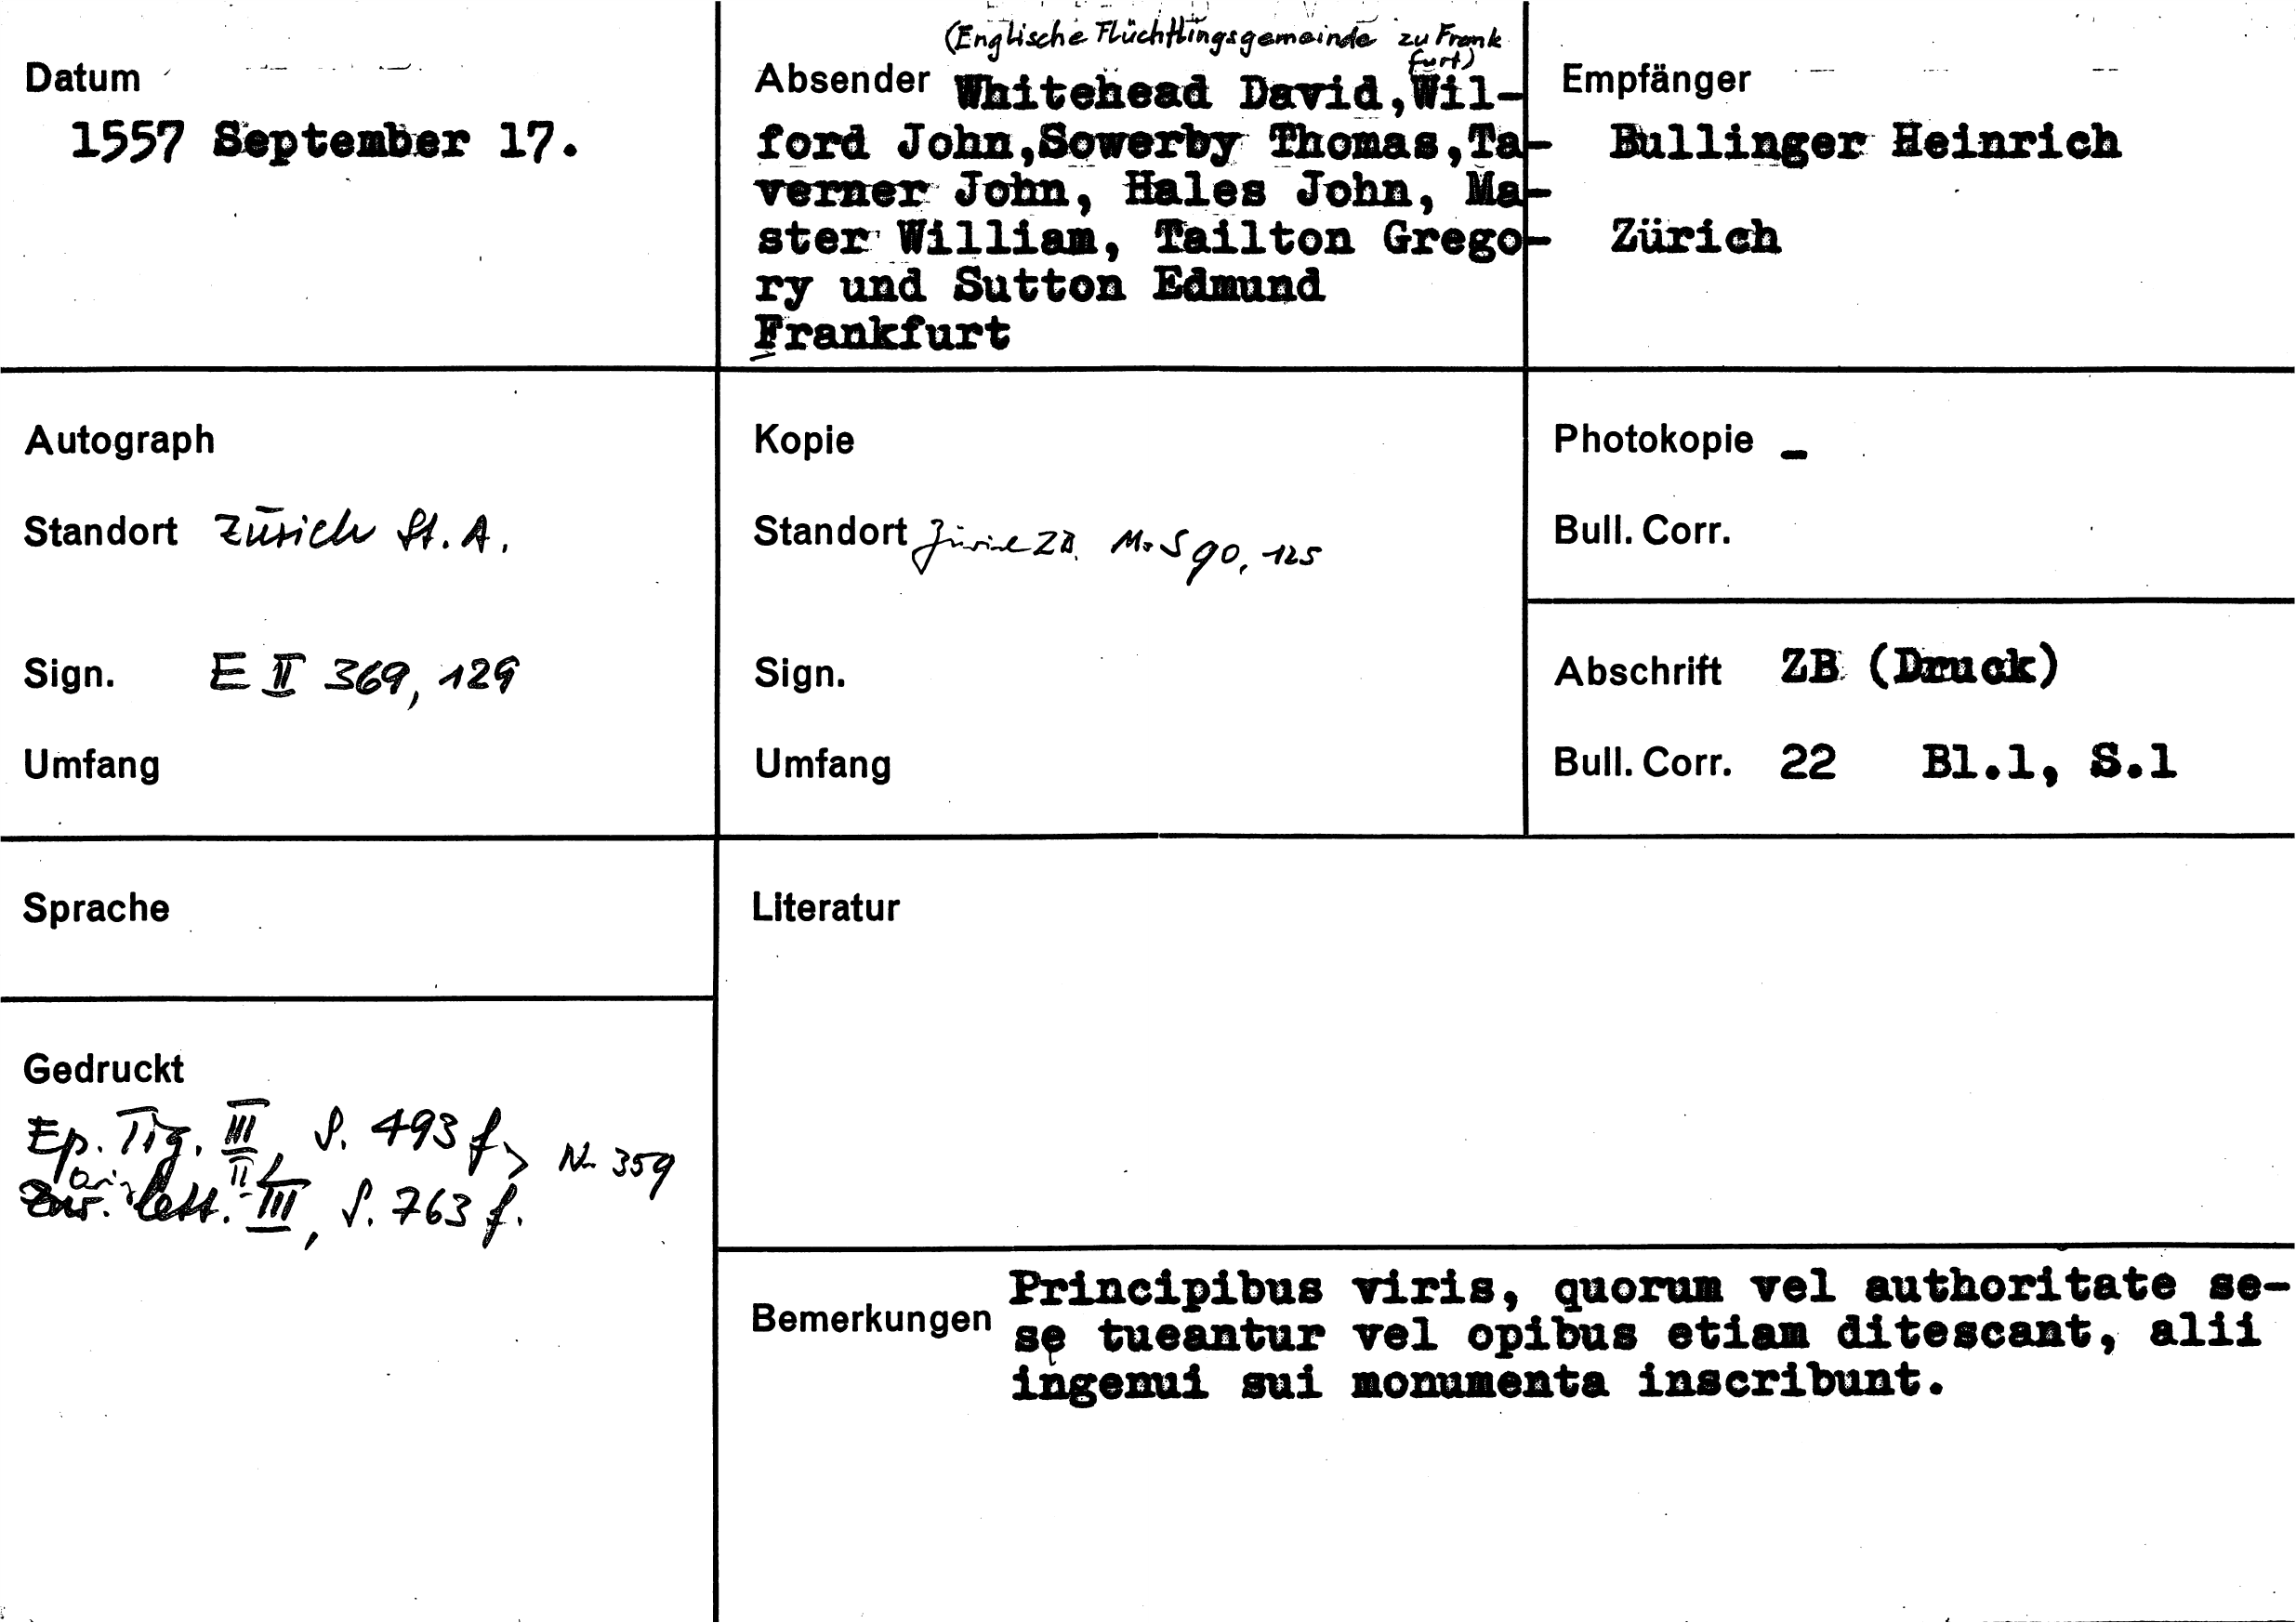 Datum
1557 September 17.
(Englische Flüchtlingsgemeinde zu Frank
furt)
Absender Whitehead David, Wil-
ford John, Sowerby Thomas, Ta-
verner John, Hales John, Ma-
ster William, Tailton Grego-
ry und Sutton Edmund
Frankfurt
Empfänger
Bullinger Heinrich
Zürich
Autograph
Standort Zürich St. A.
Sign. E II 369, 129
Umfang
Kopie
Standort Zürich ZB. Ms S 90, 125
Sign.
Umfang
Photokopie -
Bull. Corr.
Abschrift ZB (Druck)
Bull. Corr. 22 Bl.1, S.1
Sprache
Gedruckt
Ep. Tig. III, S. 493 f, N. 359
Orig. lett. II, S. 763 f.
Literatur
Bemerkungen Principibus viris, quorum vel authoritate se-
se tueantur vel opibus etiam ditescant, alii
ingenui sui monumenta inscribunt.